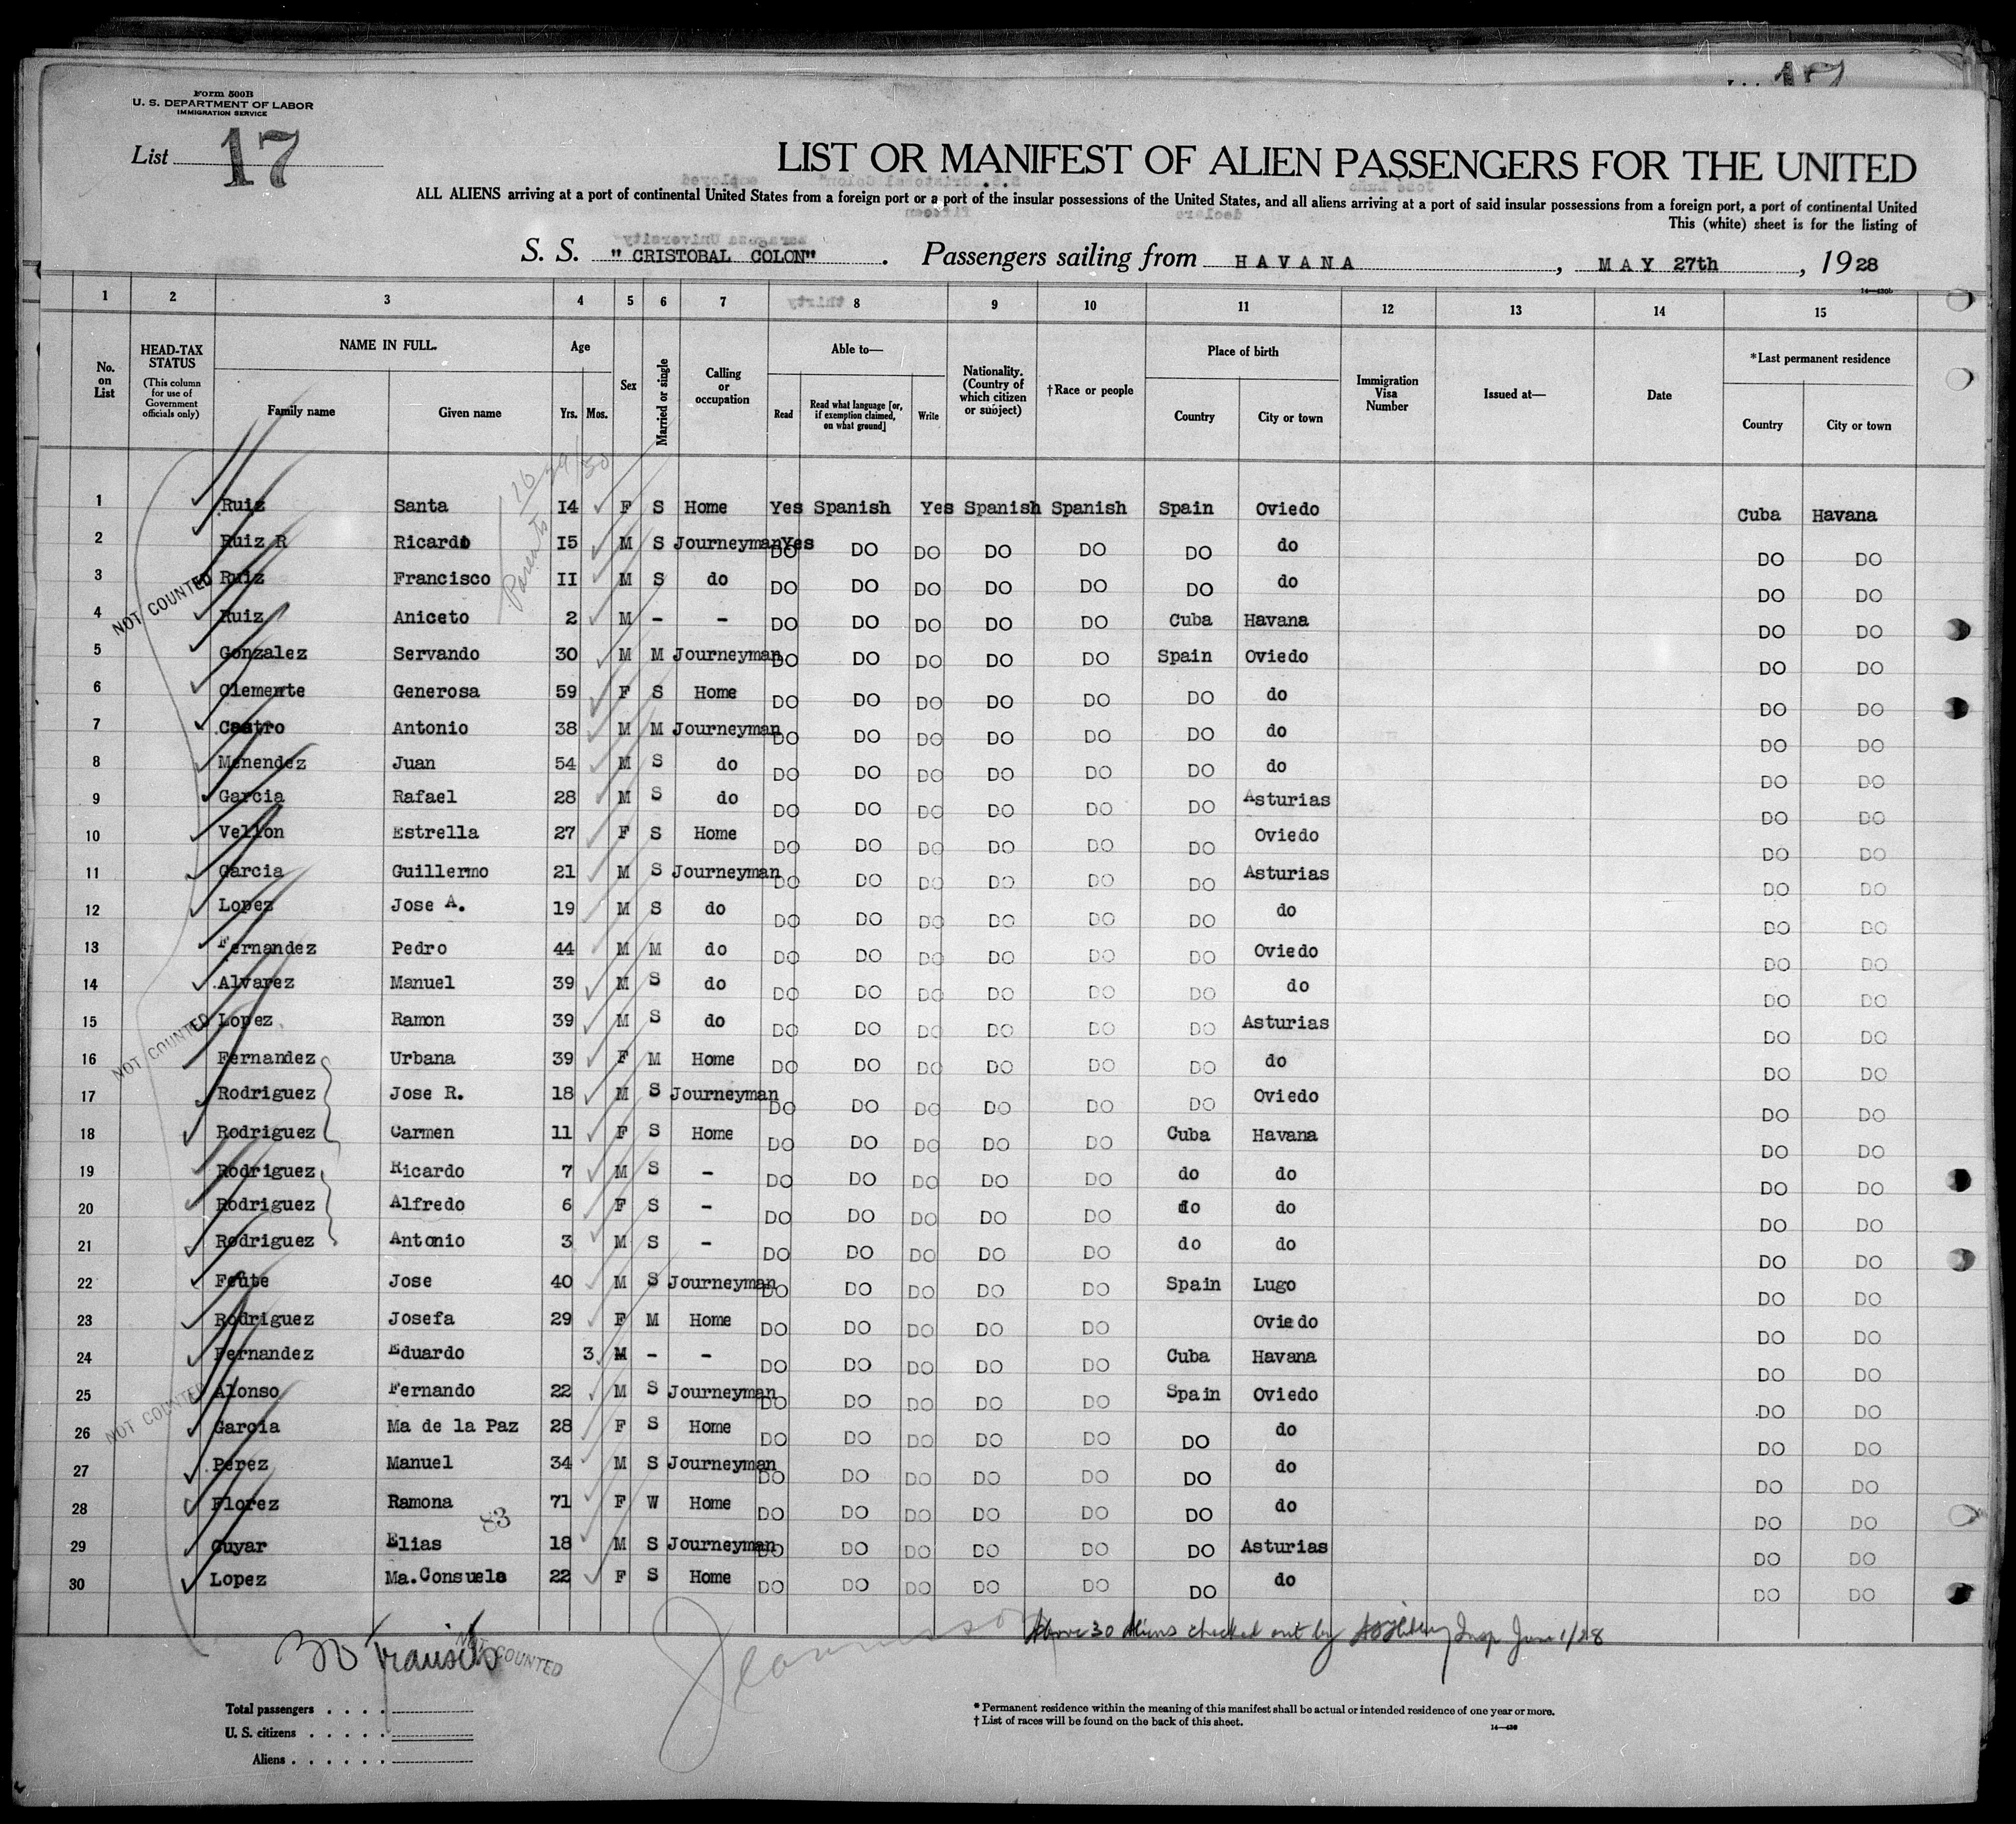 17
Form 500B
U. S. DEPARTMENT OF LABOR
IMMIGRATION SERVICE
List 17
LIST OR MANIFEST OF ALIEN PASSENGERS FOR THE UNITED
ALL ALIENS arriving at a port of continental United States from a foreign port or a port of the insular possessions of the United States, and all aliens arriving at a port of said insular possessions from a foreign port, a port of continental United
This (white) sheet is for the listing of
S. S. "CRISTOBAL COLON". Passengers sailing from HAVANA, MAY 27th, 1928
1 2 3 4 5 6 7 8 9 10 11 12 13 14 15
No. on List
HEAD-TAX STATUS (This column for use of Government officials only)
NAME IN FULL. Family name Given name
Age Yrs. Mos.
Sex
Married or single
Calling or occupation
Able to— Read Read what language [or, if exemption claimed, on what ground] Write
Nationality. (Country of which citizen or subject)
†Race or people
Place of birth Country City or town
Immigration Visa Number
Issued at—
Date
*Last permanent residence Country City or town
1 Ruiz Santa 14 F S Home Yes Spanish Yes Spanish Spanish Spain Oviedo Cuba Havana
2 Ruiz R Ricardo 15 M S Journeyman Yes DO DO DO DO DO DO do DO DO
3 Ruiz Francisco II M S do DO DO DO DO DO DO do DO DO
4 Ruiz Aniceto 2 M - - DO DO DO DO DO Cuba Havana DO DO
5 Gonzalez Servando 30 M M Journeyman DO DO DO DO DO Spain Oviedo DO DO
6 Clemente Generosa 59 F S Home DO DO DO DO DO DO do DO DO
7 Castro Antonio 38 M M Journeyman DO DO DO DO DO DO do DO DO
8 Menendez Juan 54 M S do DO DO DO DO DO DO do DO DO
9 Garcia Rafael 28 M S do DO DO DO DO DO DO Asturias DO DO
10 Vellon Estrella 27 F S Home DO DO DO DO DO DO Oviedo DO DO
11 Garcia Guillermo 21 M S Journeyman DO DO DO DO DO DO Asturias DO DO
12 Lopez Jose A. 19 M S do DO DO DO DO DO DO do DO DO
13 Fernandez Pedro 44 M M do DO DO DO DO DO DO Oviedo DO DO
14 Alvarez Manuel 39 M S do DO DO DO DO DO DO do DO DO
15 Lopez Ramon 39 M S do DO DO DO DO DO DO Asturias DO DO
16 Fernandez Urbana 39 F M Home DO DO DO DO DO DO do DO DO
17 Rodriguez Jose R. 18 M S Journeyman DO DO DO DO DO DO Oviedo DO DO
18 Rodriguez Carmen 11 F S Home DO DO DO DO DO Cuba Havana DO DO
19 Rodriguez Ricardo 7 M S - DO DO DO DO DO do do DO DO
20 Rodriguez Alfredo 6 F S - DO DO DO DO DO do do DO DO
21 Rodriguez Antonio 3 M S - DO DO DO DO DO do do DO DO
22 Feute Jose 40 M S Journeyman DO DO DO DO DO Spain Lugo DO DO
23 Rodriguez Josefa 29 F M Home DO DO DO DO DO Oviedo DO DO
24 Fernandez Eduardo 3 M - - DO DO DO DO DO Cuba Havana DO DO
25 Alonso Fernando 22 M S Journeyman DO DO DO DO DO Spain Oviedo DO DO
26 Garcia Ma de la Paz 28 F S Home DO DO DO DO DO DO do DO DO
27 Perez Manuel 34 M S Journeyman DO DO DO DO DO DO do DO DO
28 Florez Ramona 71 F W Home DO DO DO DO DO DO do DO DO
83
29 Cuyar Elias 18 M S Journeyman DO DO DO DO DO DO Asturias DO DO
30 Lopez Ma.Consuelo 22 F S Home DO DO DO DO DO DO do DO DO
Parents
NOT COUNTED
NOT COUNTED
NOT COUNTED
Above 30 Aliens checked out by Insp June 1/28
30 Transits
NOT COUNTED
Total passengers
U. S. citizens
Aliens
* Permanent residence within the meaning of this manifest shall be actual or intended residence of one year or more.
† List of races will be found on the back of this sheet.
14—430